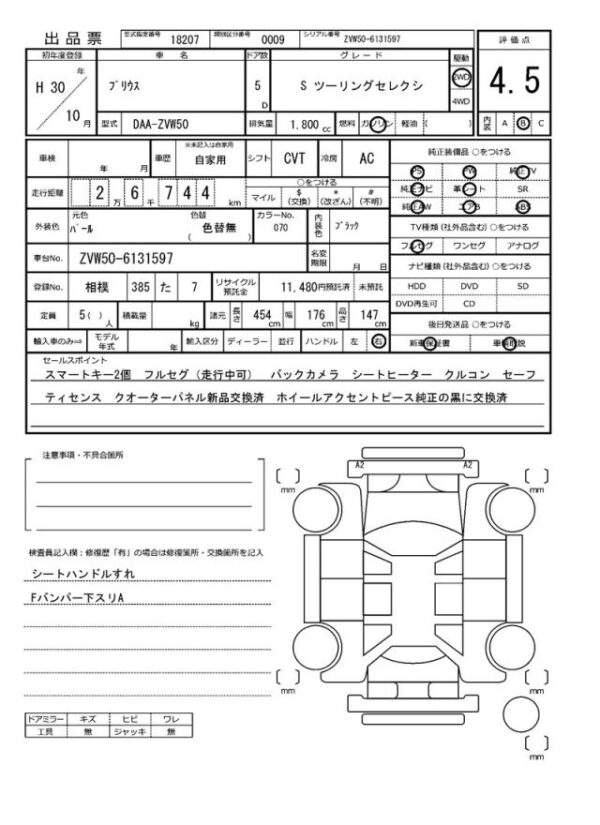 出品票 型式指定番号 18207 類別区分番号 0009 シリアル番号 ZVW50-6131597 評価点
初年度登録 車名 ドア数 グレード 駆動
H 30 年 プリウス 5 D S ツーリングセレクシ 2WD 4WD 4.5
10 月 型式 DAA-ZVW50 排気量 1,800 cc 燃料 ガソリン 軽油 ( ) 内装 A B C
車検 年 月 車歴 ※未記入は自家用 自家用 シフト CVT 冷房 AC 純正装備品 ○をつける
PS PW 純正TV
走行距離 2 万 6 千 7 4 4 km ○をつける マイル $ (交換) * (改ざん) # (不明) 純正ナビ 革シート SR
純正AW エアB ABS
外装色 元色 パール 色替 ( 色替無 ) カラーNo. 070 内装色 ブラック TV種類(社外品含む) ○をつける
フルセグ ワンセグ アナログ
車台No. ZVW50-6131597 名変期限 月 日 ナビ種類(社外品含む) ○をつける
登録No. 相模 385 た 7 リサイクル預託金 11,480円預託済 未預託 HDD DVD SD
DVD再生可 CD
定員 5( )人 積載量 kg 諸元 長さ 454 cm 幅 176 cm 高さ 147 cm 後日発送品 ○をつける
輸入車のみ⇒ モデル年式 年 輸入区分 ディーラー 並行 ハンドル 左 右 新車保証書 車輌取説
セールスポイント
スマートキー2個 フルセグ(走行中可) バックカメラ シートヒーター クルコン セーフ
ティセンス クオーターパネル新品交換済 ホイールアクセントピース純正の黒に交換済
注意事項・不具合箇所
A2 A2
mm mm
検査員記入欄:修復歴「有」の場合は修復箇所・交換箇所を記入
シートハンドルすれ
Fバンパー下スリA
mm mm
ドアミラー キズ ヒビ ワレ
工具 無 ジャッキ 無
mm